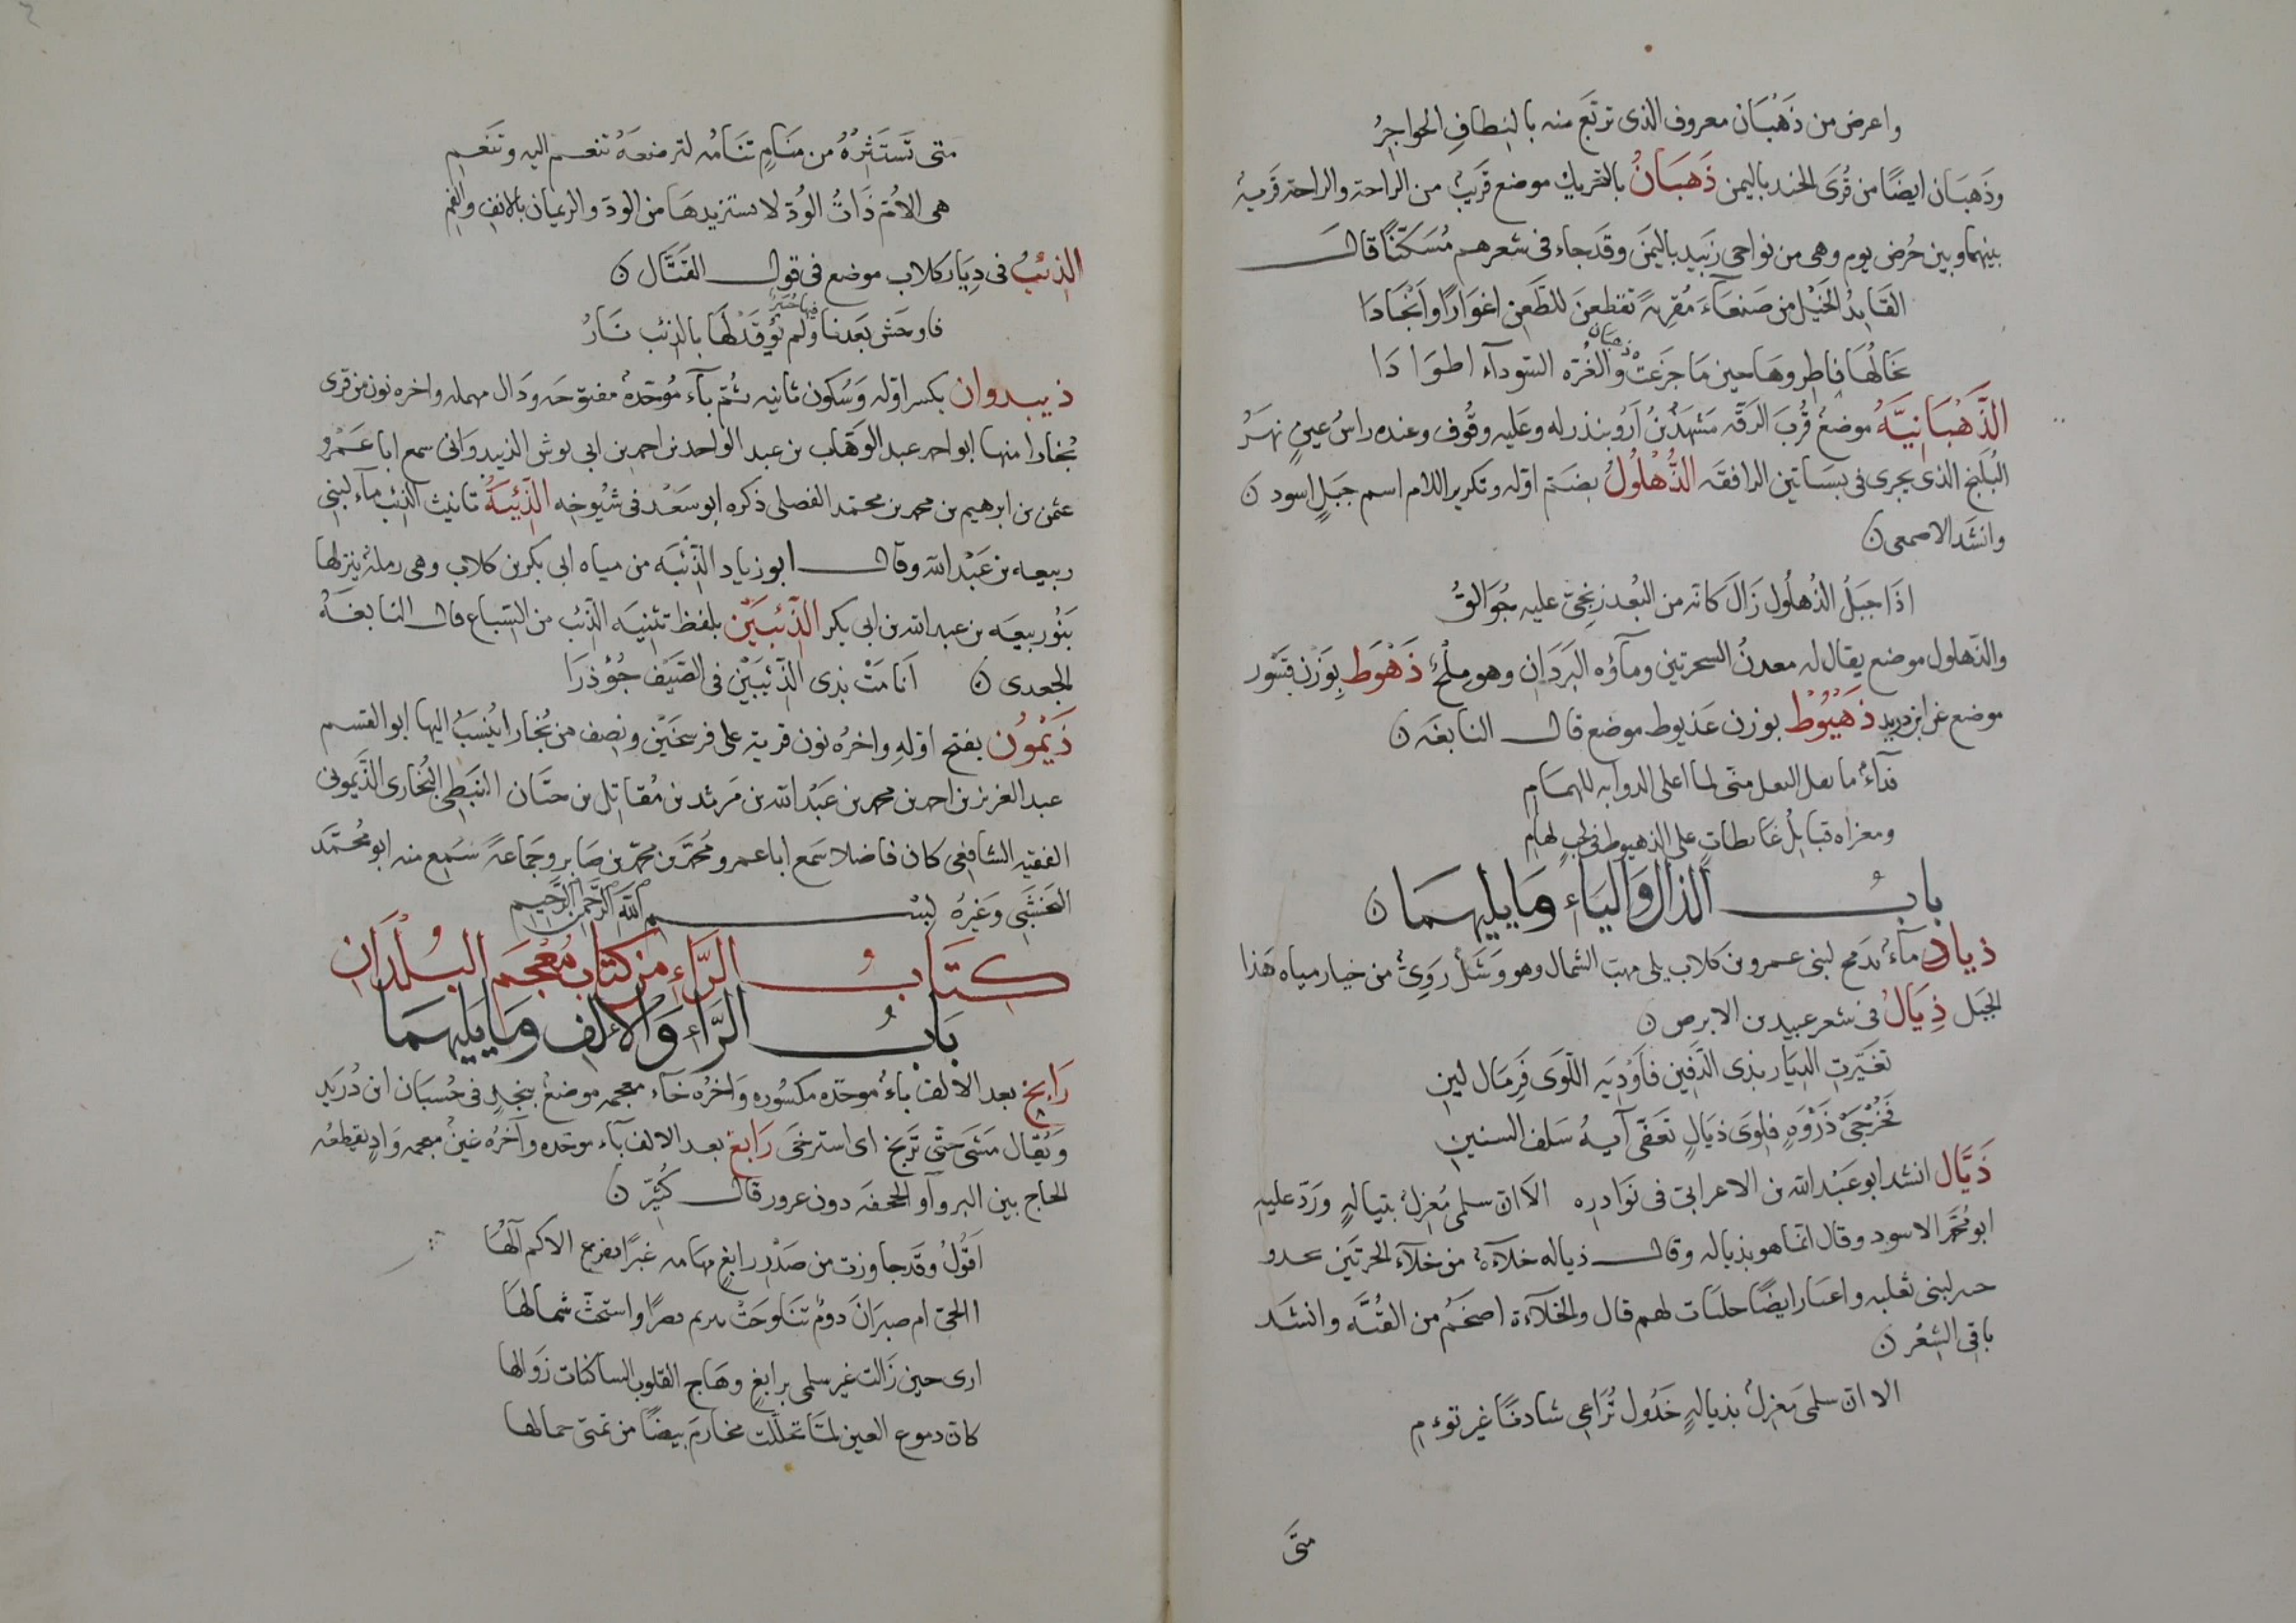 واعرض من ذَهْبَان معروف الذى تربّع منه بالنِطافِ الحواجِرُ
وذَهبَان ايضًا من قُرَى الجند باليمن ذَهبَانُ بالتحريك موضع قَريبٌ من الراحة والراحة قَرية
بينها وبين حُرض يوم وهى من نواحى زَبيد باليمَن وقَد جاء فى شعرهم مُسَكّنًا قالَ
القَايدُ الخَيْل من صَنعَآءَ مُقرِبةً تقطعنَ للطَعن اغوَارًا وَانْجَادَا
تخَالُهَا فاطروهَا حين مَا جَزَعَتْ ذهبان والغُرّه السودآء اطوَادَا
الذَّهْبَانِيَّةُ موضعُ قُربَ الرَقّه مَشهَدٌ يُزَارُ وينذر له وعَليه وقُوف وعنده راسُ عينٍ نهَرُ
البُلَيْخ الذى يجرى فى بسَاتين الرافقَه الذُّهْلُولُ بضَمّ اوّله وتكرير اللام اسم جَبَلٍ اسود ن
وانشَد الاصمعى ن
اذَا جبَلُ الذُهلُول زَالَ كانّه من البُعد زنجىّ عليه جُوَالِقُ
والذّهلول موضع يقال له معدنُ السحرتين ومآؤه البَرَدَان وهو مِلْحٌ ذَهْوَط بوَزن قَسْوَر
موضع عن ابن دريد ذَهْيُوُط بوزن عَذيوط موضع قالَ النابغَه ن
فدآءٌ ما نقل النعل منّى لما اعلى الدوابه للهمَامِ
ومغزاه قبايلُ غايظاتٍ على الذهيوط فى لجبٍ لهام
بابُ الذَالِ وَاليَاءِ وَمَا يليهمَا ن
ذيادُ مآءٌ بدَمخ لبنى عمرو بن كلاب يلى مهبّ الشمال وهو وَشَلٌ رَوِىٌ من خيار مياه هَذا
الجبَل ذِيَالُ فى شعر عبيد بن الابرص ن
تغيّرتِ الديَار بذى الدَفين فَاَوْدِيَه اللّوَى فَرِمَال لين
فَخَرْجَىْ ذَرْوَةٍ فلِوَى ذيَالٍ تعَفّى آيهُ سَلف السنين
ذَيَّال انشد ابو عَبْد الله بن الاعرابى فى نوَادره الاَ ان سلمى مُغزِلٌ بتيالهٍ ورَدّ عليه
ابو مُحَمّد الاسود وقال انمّا هو بذياله وقالَ ذياله خلآءةٌ من خلآءَ الحرتَين
لبنى ثعلبه ايضًا لهم قال والخلآءة اضخَمُ من القُنَّه وانشَد
باقى الشعْر ن
الا ان سلمىَ مُغزلٌ بذيالهٍ خَذُول تُرَاعِى شادنًا غير توءم
متىَ
متى تَستَثِرْهُ من مَنَامٍ تنَامُه لترضعَهُ تنعم اليه وتَنغَمِ
هى الاُمّ ذَاتُ الوُدّ لا يستزيدهَا من الودّ والريمان بالانفِ والفمِ
الذِئبُ فى دِيَار كلاب موضع فى قول القَتَّال ن
فاوحَش بَعدنا منها حُبَرٌ ولم تُوقَدْ لَهَا بالذئب نَارُ
ذيبدوان بكسر اوّله وَسُكون ثانيه ثُم بآء مُوحّدةٌ مفتوحَه ودَال مهمله واخره نون من قرى
بُخارا منها ابو احمد عبد الوهَّاب بن عبد الواحد بن احمد بن ابى بوش الذيبدوَانى سمع ابا عَمْرو
عثمن بن ابرهيم بن محمد بن محمّد الفضلى ذكره ابو سَعْد فى شيُوخِه الذِّئبَةُ تانيث الذئب مآء لبنى
ربيعه بن عَبْد الله وقالَ ابو زياد الذّئبَه من مياه ابى بكر بن كلاب وهى رملةٌ ينزلها
بنُو ربيعَه بن عبد الله بن ابى بكر الذِّئبَيْن بلفظ تثنِيَه الذّئب من السباع قالَ النابغَهُ
الجعدى ن اَنا مَتْ بذى الذّئبَيْن فى الصَيْف جُؤذرَا
ذَيْمُونُ بفتح اوّلهِ واخرُه نون قرية على فرسَخَيْن ونِصف من بُخارا يُنسَبُ اليها ابو القسم
عبد العزيز بن احمد بن محمد بن عَبْد الله بن مَرثد بن مُقَاتِل بن حيّان النبَطِى البُخارى الذّيمونى
الفقيه الشافعى كان فاضلا سَمع ابا عمرو مُحمّد بن محمّد بن صَابر وجَماعةً سَمِع منه ابو مُحَمَّد
النخشَبِى وَغيرُهُ بسْم اللّه الرَّحْمن الرَّحيم
كِتَابُ الرَّاءِ من كتَاب مُعْجَم البُلدَان
بَابُ الرَّاءِ وَالاَلِف وَمَا يَليهمَا
رَابِخ بعد الالف باءٌ موحدّه مكسُوره وَاخرُه خآء معجمه موضعُ بنجدٍ فى حُسبَان ابن دُرَيد
وَيُقال مَشَى حتىّ تَرَبّخ اى استرخَى رَابغ بعد الالف بآء موحّده وآخرُه غينٌ معجمه وَادٍ يقطعُه
الحاج بين البزوآ والجحفَه دون عزور قالَ كُثيّر ن
اَقُولُ وقَد جاوزت من صَدْر رابغٍ مهَامه غبرًا يفرع الاكم آلُهَا
االحىّ ام صيرَانَ دوْمٍ تنَاوحَتْ بتريم قصرًا واستحَثّ شمالُها
ارى حين زَالت غير سلمى برابغٍ وهَاج القلوب الساكنات زَوالها
كانّ دموع العين لمّا تخلّلت مخارمَ بيضًا من تمنّى جمالها